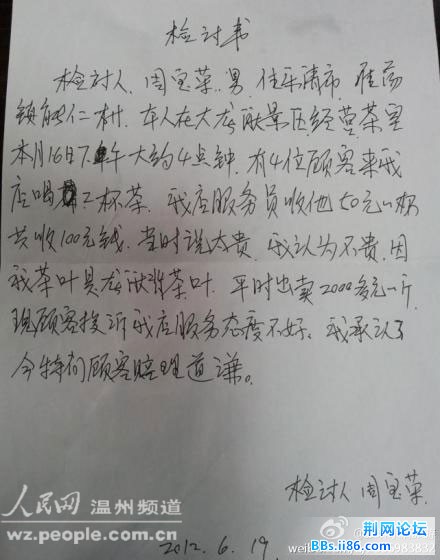 检讨书
检讨人，周宝荣．男．住乐清市．雁荡
镇能仁村．本人在大龙湫景区经营茶室
本月16日下午大约4点钟．有4位顾客来我
店喝二杯茶．我店服务员收他50元一杯
共收100元钱．当时说太贵．我认为不贵．因
我茶叶是龙湫背茶叶．平时出卖2000多元一斤．
现顾客投诉我店服务态度不好．我承认了
今特向顾客赔理道谦。
检讨人 周宝荣
2012．6．19
人民网 温州频道
wz.people.com.cn
荆网论坛
BBs.ii86.com